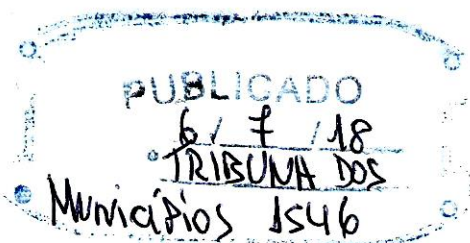 PUBLICADO
6 / 7 / 18
TRIBUNA DOS
Municípios 1546